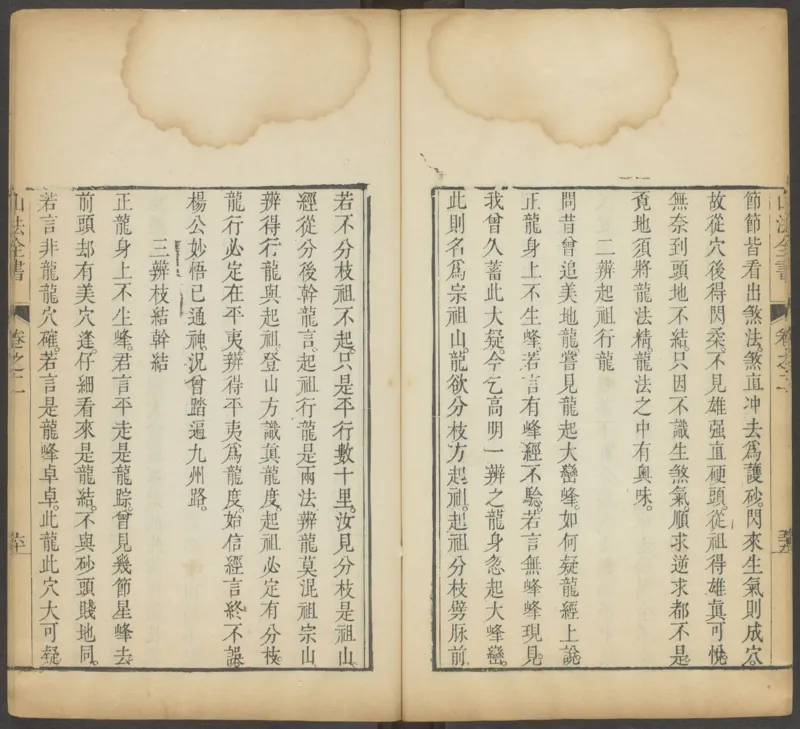 節節皆看出煞法。煞直冲去爲護砂。閃來生氣則成穴。
故從穴後得閃柔。不見雄强直硬頭。從祖得雄眞可悅。
無奈到頭地不結。只因不識生煞氣。順求逆求都不是。
覓地須將龍法精。龍法之中有奥味。
二辨起祖行龍
問昔曾追美地龍。嘗見龍起大巒峰。如何疑龍經上說。
正龍身上不生峰。若言有峰經不驗。若言無峰峰現見。
我曾久蓄此大疑。今乞高明一辨之。龍身忽起大峰巒。
此則名爲宗祖山。龍欲分枝方起祖。起祖分枝劈脉前。
若不分枝祖不起。只是平行數十里。汝見分枝是祖山。
經從分後幹龍言。起祖行龍是兩法。辨龍莫混祖宗山。
辨得行龍與起祖。登山方識眞龍度。起祖必定有分枝。
龍行必定在平夷。辨得平夷爲龍度。始信經言終不誤。
楊公妙悟已通神。況曾踏遍九州路。
三辨枝結幹結
正龍身上不生峰。君言平走是龍踪。曾見幾節星峰去。
前頭却有美穴逢。仔細看來是龍結。不與砂頭賤地同。
若言非龍龍穴確。若言是龍峰卓卓。此龍此穴大可疑。
山法全書
卷之二